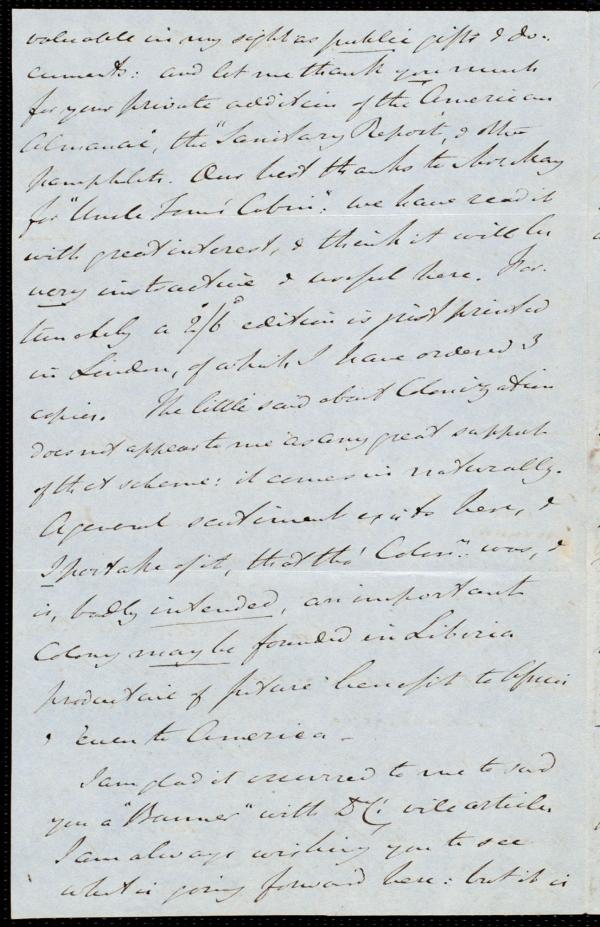 valuable in my sight as public gifts & do-
cuments: and let me thank you much
for your private addition of the American
Almanac", the "Sanitary Report", & other
pamphlets. Our best thanks to Mr. May
for "Uncle Tom's Cabin": we have read it
with great interest, & think it will be
very instructive & useful here. For-
tunately a 2/6 edition is just printed
in London, of which I have ordered 3
copies. The little said about Colonization
does not appear to me as any great support
of that scheme: it comes in naturally.
A general sentiment exists here, &
I partake of it, that tho' Colon.n was, &
is, badly intended, an important
Colony may be founded in Liberia
productive of future benefit to Africa
& even to America -
I am glad it occurred to me to send
you a "Banner" with D C's vile article
I am always wishing you to see
what is going forward here: but it is